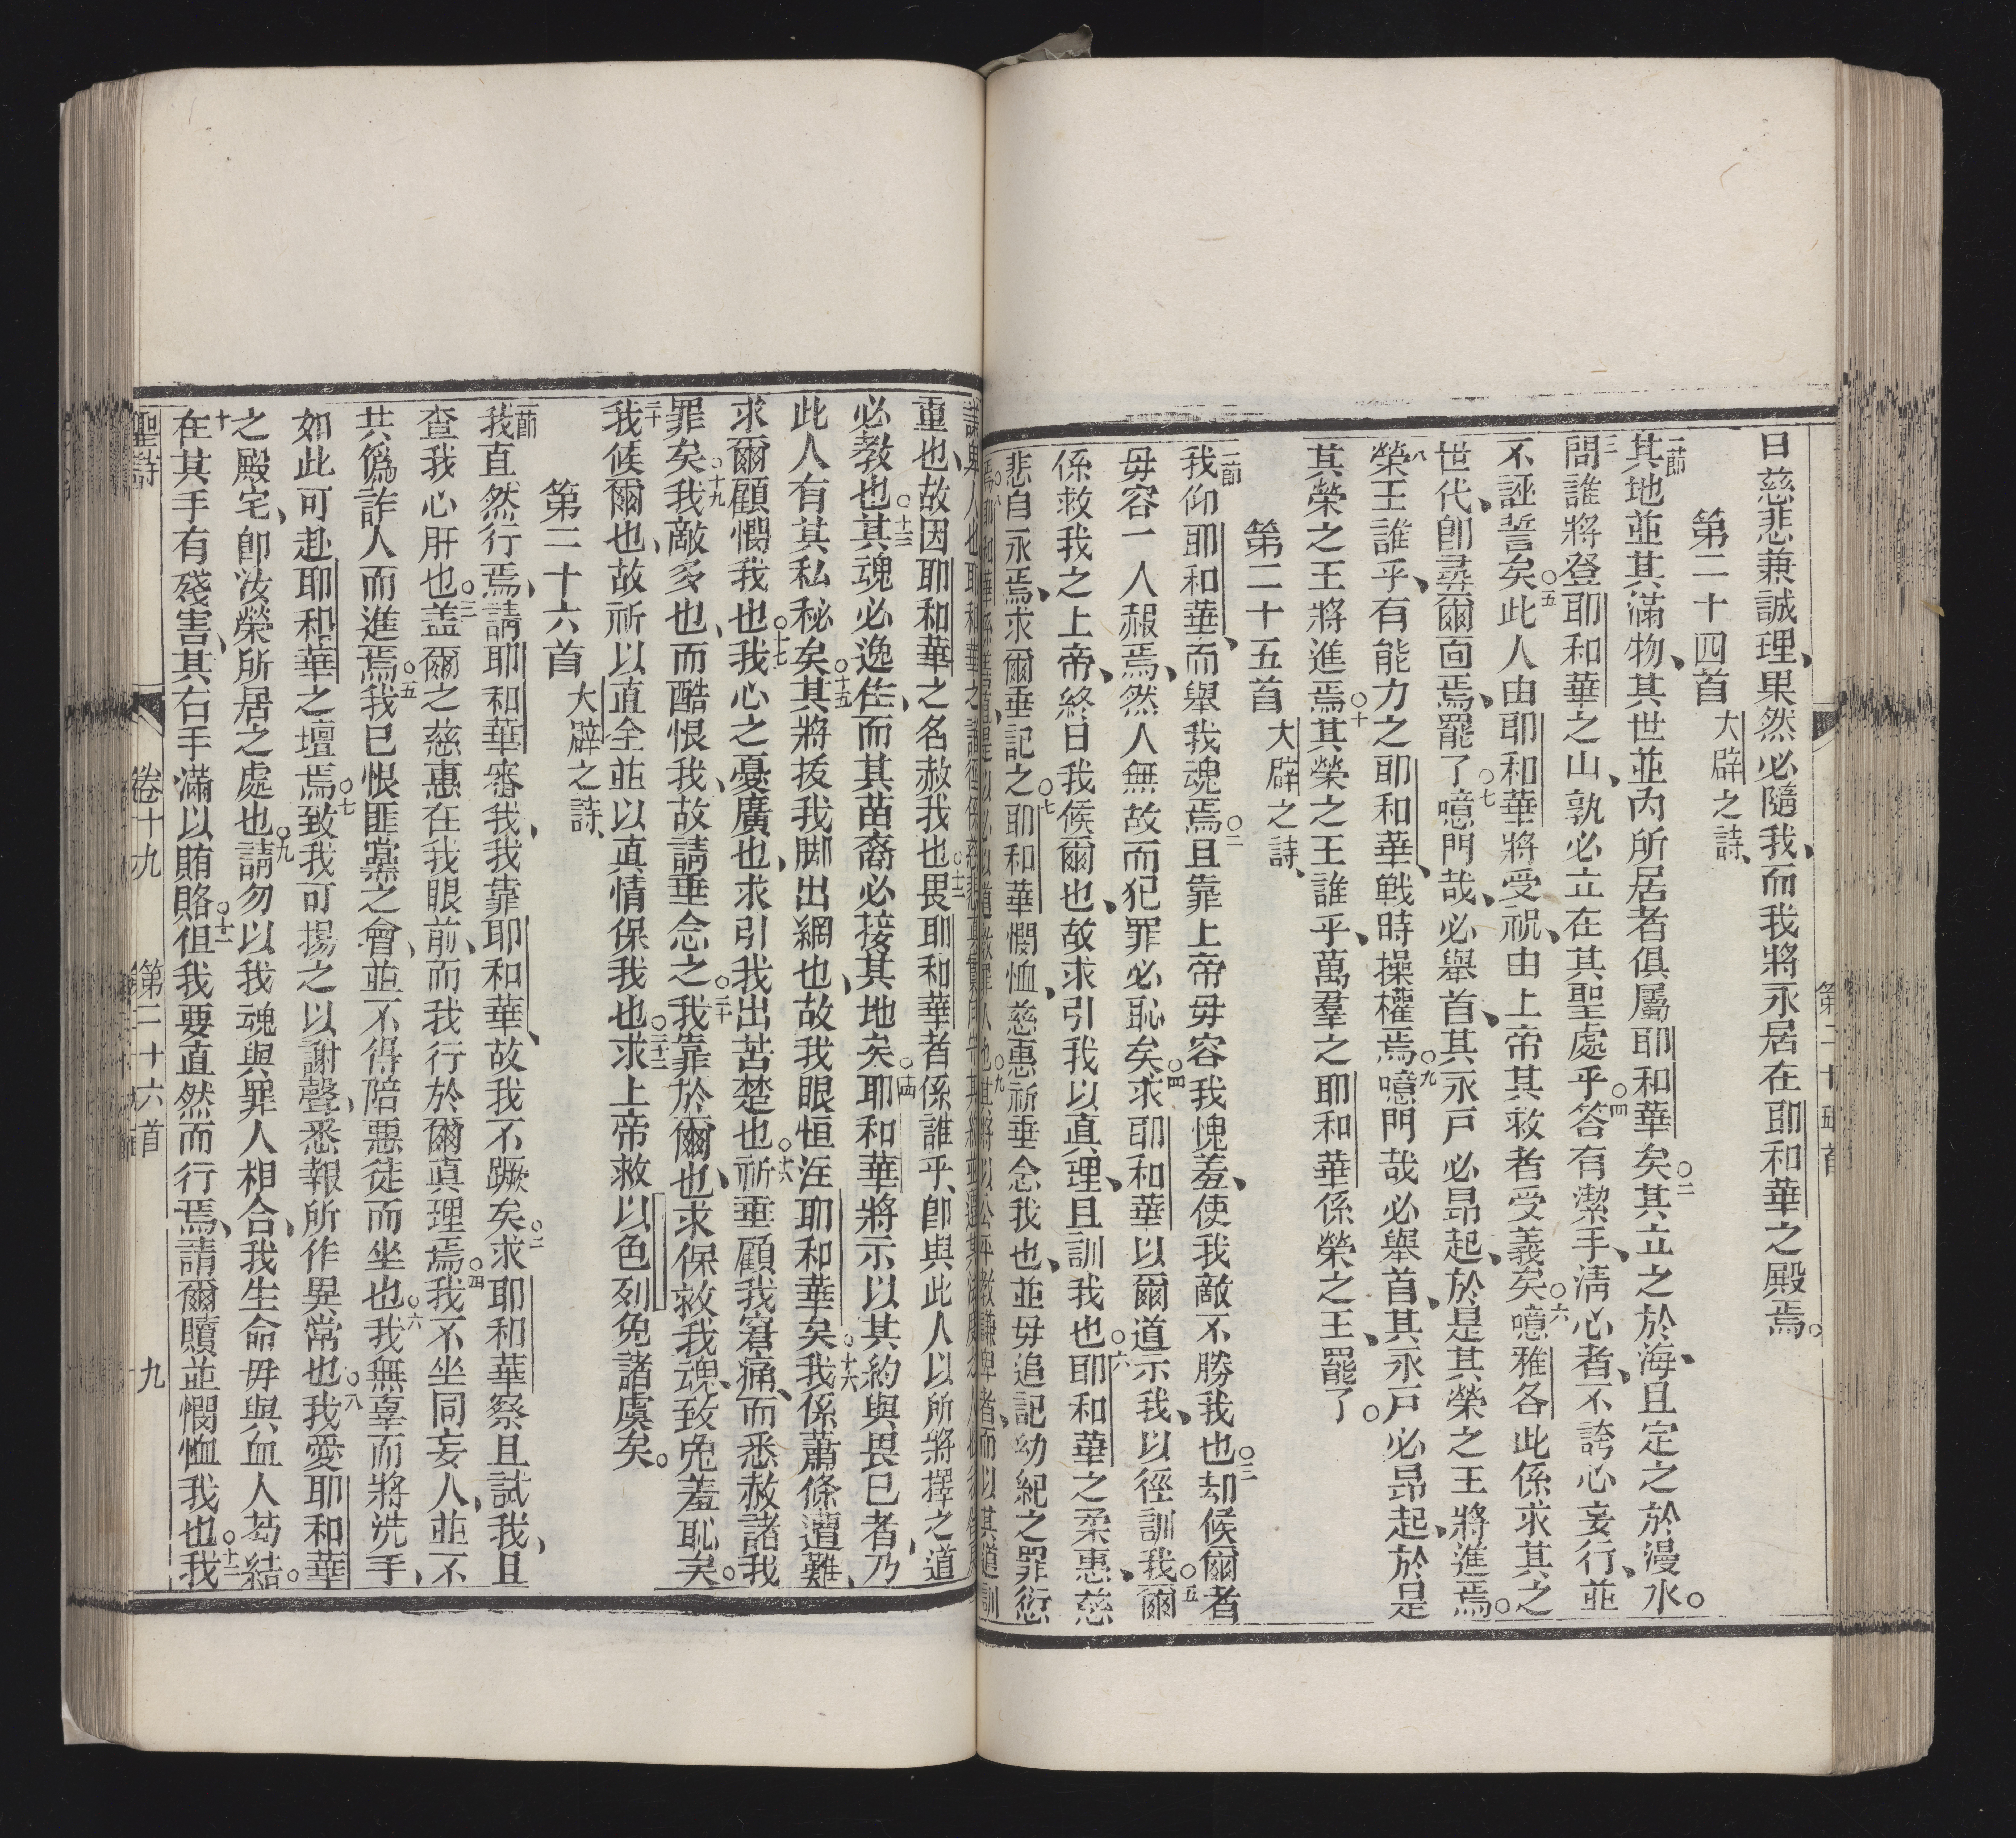 日慈悲兼誠理、果然必隨我、而我將永居在耶和華之殿焉。
第二十四首 大辟之詩、
一節 其地並其滿物、其世並內所居者俱屬耶和華矣○二其立之於海、且定之於漫水。
三 問誰將登耶和華之山、孰必立在其聖處乎○四答有潔手、淸心者、不誇心妄行、並
不誣誓矣○五此人由耶和華將受祝、由上帝其救者受義矣○六噫雅各此係求其之
世代、卽尋爾面焉、罷了○七噫門哉、必舉首、其永戶必昂起、於是其榮之王將進焉。
八 榮王誰乎、有能力之耶和華、戰時操權焉○九噫門哉必舉首、其永戶必昂起、於是
其榮之王將進焉○十其榮之王誰乎、萬羣之耶和華係榮之王、罷了。
第二十五首 大辟之詩、
一節 我仰耶和華、而舉我魂焉○二且靠上帝毋容我愧羞、使我敵不勝我也○三却候爾者
毋容一人赧焉、然人無故而犯罪必恥矣○四求耶和華以爾道示我、以徑訓我○五爾
係救我之上帝、終日我候爾也、故求引我以眞理、且訓我也○六耶和華之柔惠、慈
悲自永焉、求爾垂記之○七耶和華憫恤、慈惠祈垂念我也、並毋追記幼紀之罪愆
焉○八耶和華係善道、是以必以道教罪人也○九其將以公平教謙卑者、而以其道訓
重也、故因耶和華之名赦我也○十二畏耶和華者係誰乎、卽與此人以所將擇之道
必教也○十三其魂必逸住、而其苗裔必接其地矣○十四耶和華將示以其約與畏巳者、乃
此人有其私秘矣○十五其將拔我脚出網也、故我眼恒注耶和華矣○十六我係蕭條遭難、
求爾顧憫我也○十七我心之憂廣也、求引我出苦楚也○十八祈垂顧我窘痛、而悉赦諸我
罪矣○十九我敵多也、而酷恨我、故請垂念之○二十我靠於爾也、求保救我魂、致免羞恥矣。
二十一 我候爾也、故祈以直全並以眞情保我也○二十二求上帝救以色列免諸虞矣。
第二十六首 大辟之詩、
一節 我直然行焉、請耶和華審我、我靠耶和華、故我不蹶矣○二求耶和華察且試我、且
查我心肝也○三盖爾之慈惠在我眼前、而我行於爾眞理焉○四我不坐同妄人、並不
共僞詐人而進焉○五我已恨匪黨之會、並不得陪惡徒而坐也○六我無辜而將洗手、
如此可赴耶和華之壇焉○七致我可揚之以謝聲、悉報所作異常也○八我愛耶和華
之殿宅、卽汝榮所居之處也○九請勿以我魂與罪人相合、我生命毋與血人葛結。
十 在其手有殘害、其右手滿以賄賂○十一但我要直然而行焉、請爾贖並憫恤我也○十二我
聖詩 卷十九 第二十六首 九